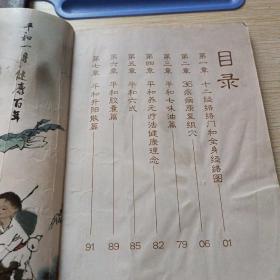 目录
第一章 十二经络络门和全身经络图 01
第二章 36疾病康复组穴 06
第三章 平和七味油篇 79
第四章 平和养元疗法健康理念 82
第五章 平和六式 85
第六章 平和胶囊篇 89
第七章 平和升阳散篇 91
平和一身 健康百年